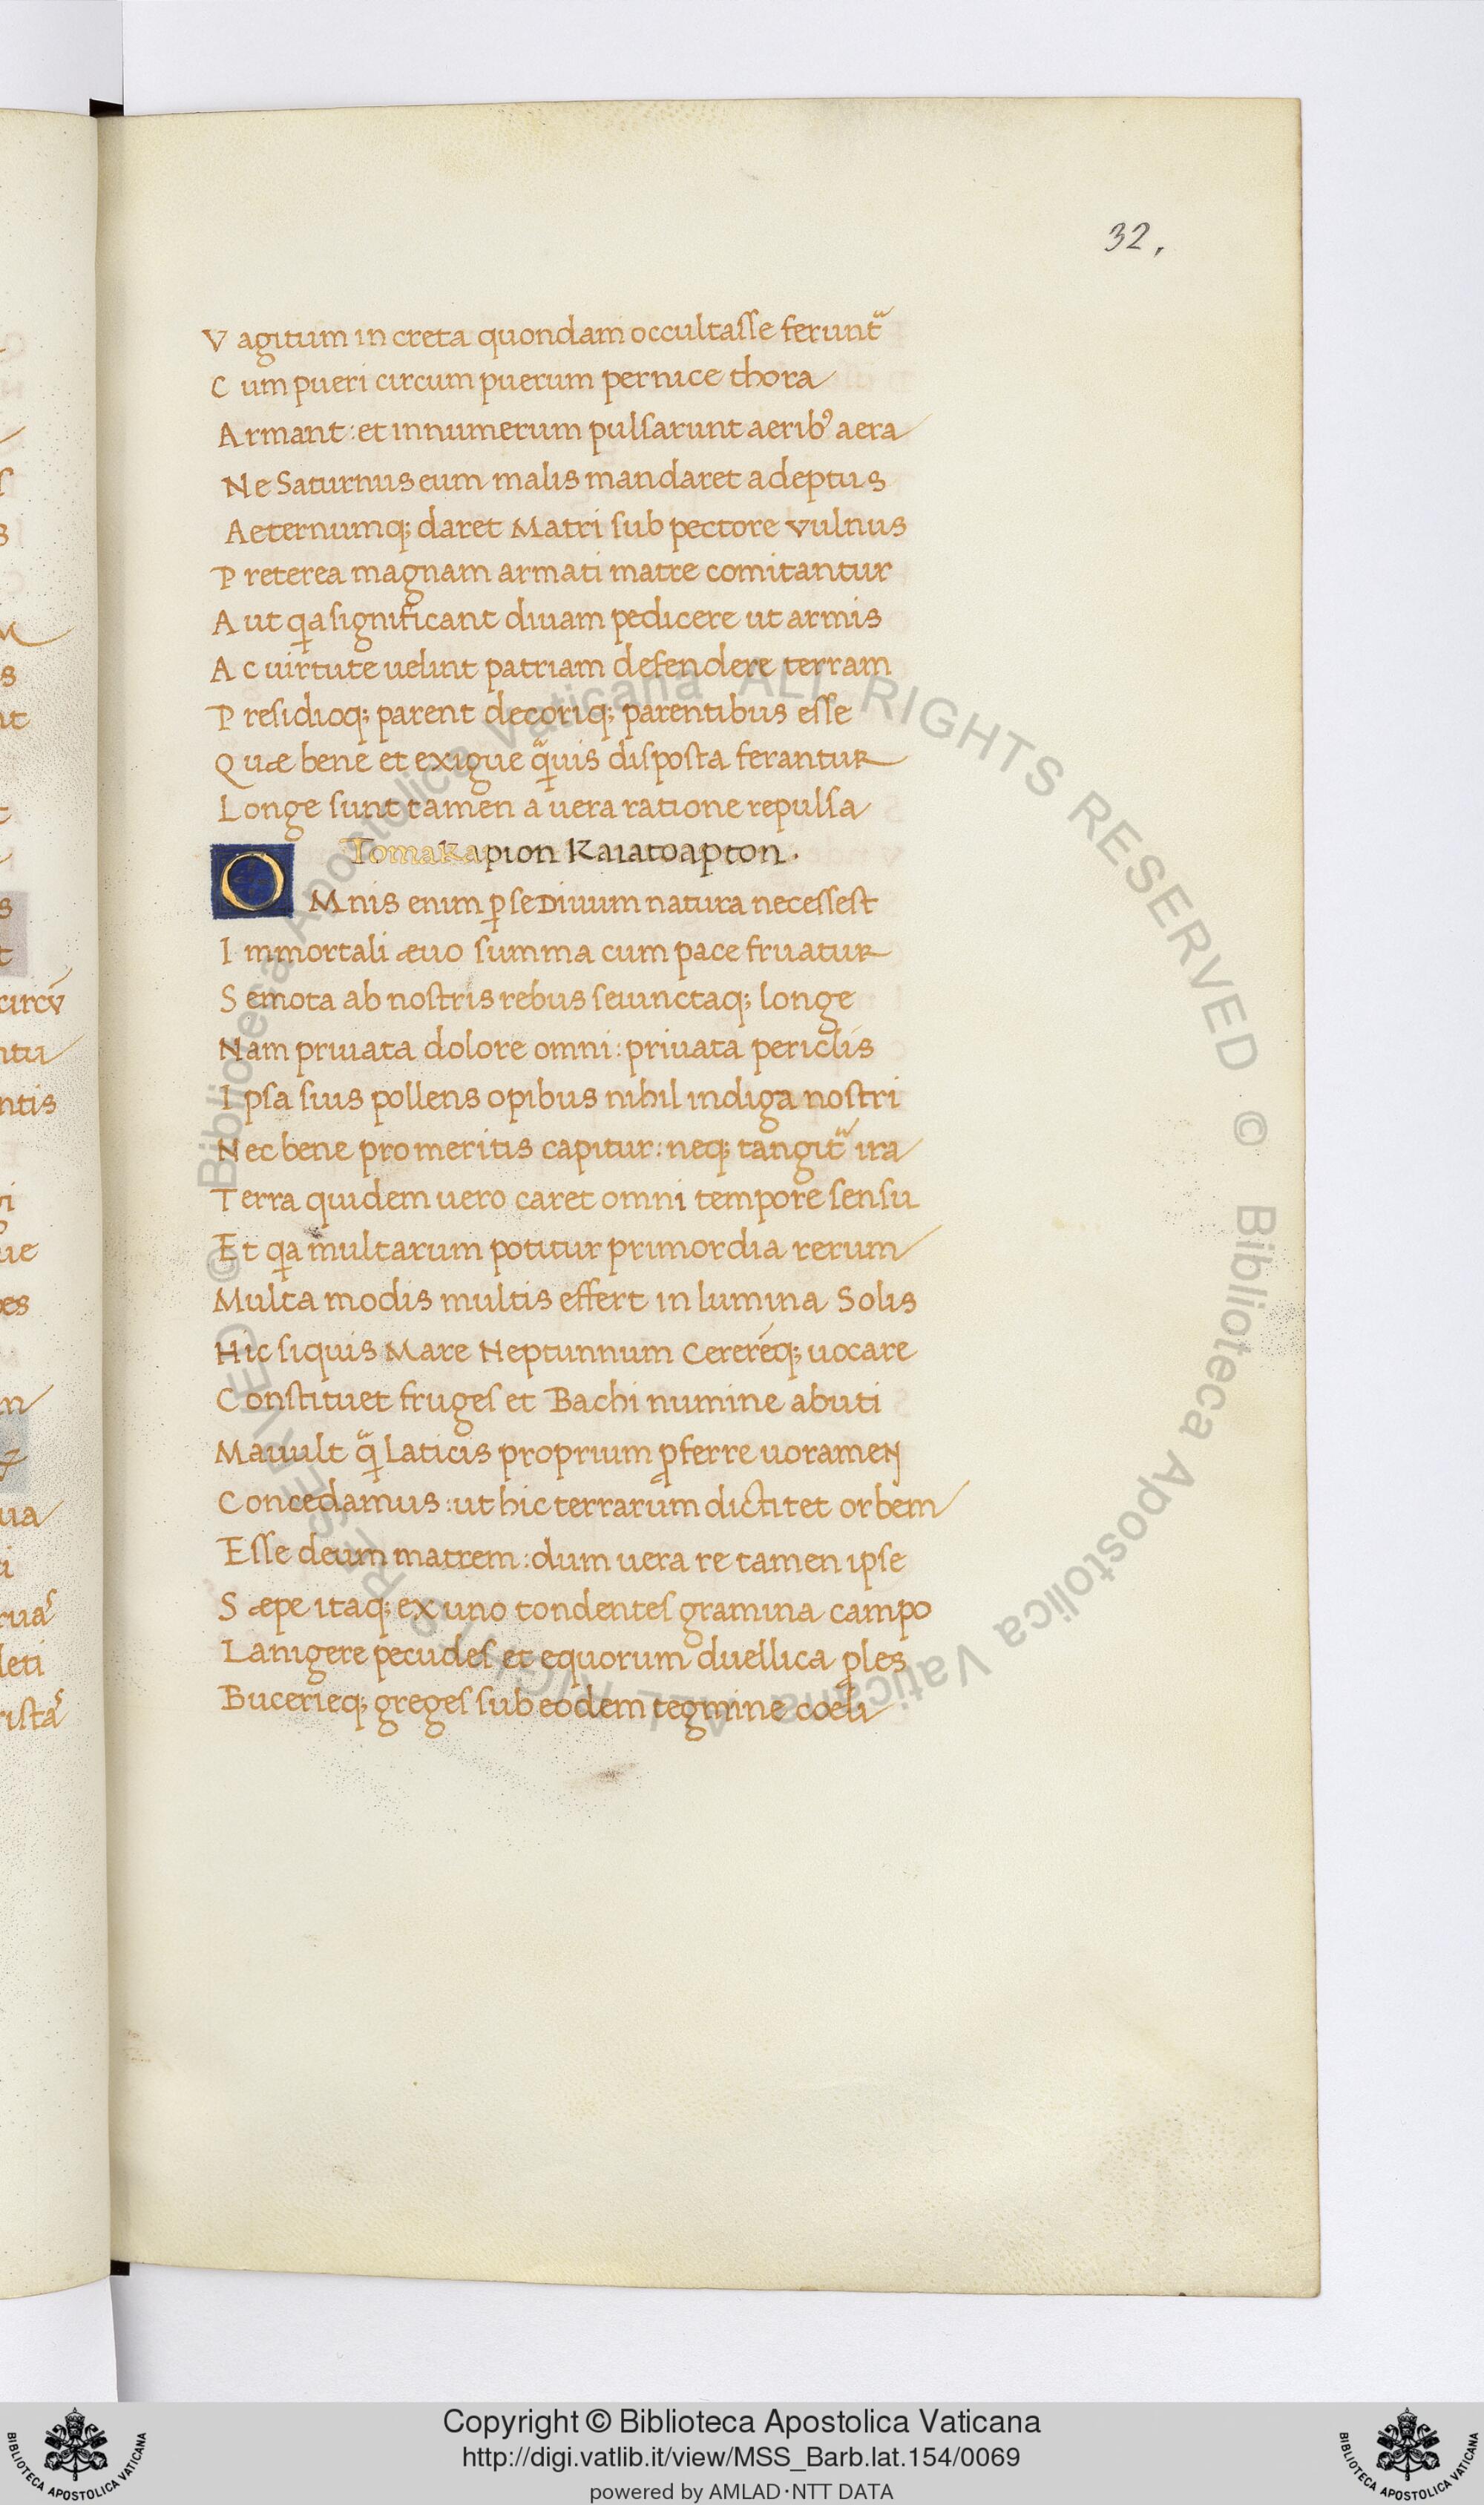 32.
Vagitum in creta quondam occultasse ferunt᷑
Cum pueri circum puerum pernice thora
Armant: et innumerum pulsarunt aeribꝰ aera
Ne Saturnus eum malis mandaret adeptus
Aeternumq; daret Matri sub pectore vulnus
Preterea magnam armati matre comitantur
Aut qa significant diuam pedicere ut armis
Ac uirtute uelint patriam defendere terram
Presidioq; parent decoriq; parentibus esse
Quæ bene et exigue qᷓuis disposta ferantur
Longe sunt tamen a uera ratione repulsa
Tomakapion kaiatoapton.
OMnis enim ꝑ se Diuum natura necessest
Immortali æuo summa cum pace fruatur
Semota ab nostris rebus seiunctaq; longe
Nam priuata dolore omni: priuata periclis
Ipsa suis pollens opibus nihil indiga nostri
Nec bene promeritis capitur: neq; tangit᷑ ira
Terra quidem uero caret omni tempore sensu
Et qa multarum potitur primordia rerum
Multa modis multis effert in lumina Solis
Hic siquis Mare Neptunnum Cererēq; uocare
Constituet fruges et Bachi numine abuti
Mauult qᷓ laticis proprium ꝓferre uoramen
Concedamus: ut hic terrarum dictitet orbem
Esse deum matrem: dum uera re tamen ipse
Sæpe itaq; ex uno tondentes gramina campo
Lanigere pecudes et equorum duellica ꝓles
Bucerieq; greges sub eodem tegmine coeli
© Biblioteca Apostolica Vaticana ALL RIGHTS RESERVED © Biblioteca Apostolica Vaticana ALL RIGHTS RESERVED
Copyright © Biblioteca Apostolica Vaticana
http://digi.vatlib.it/view/MSS_Barb.lat.154/0069
powered by AMLAD·NTT DATA
BIBLIOTECA APOSTOLICA VATICANA
BIBLIOTECA APOSTOLICA VATICANA